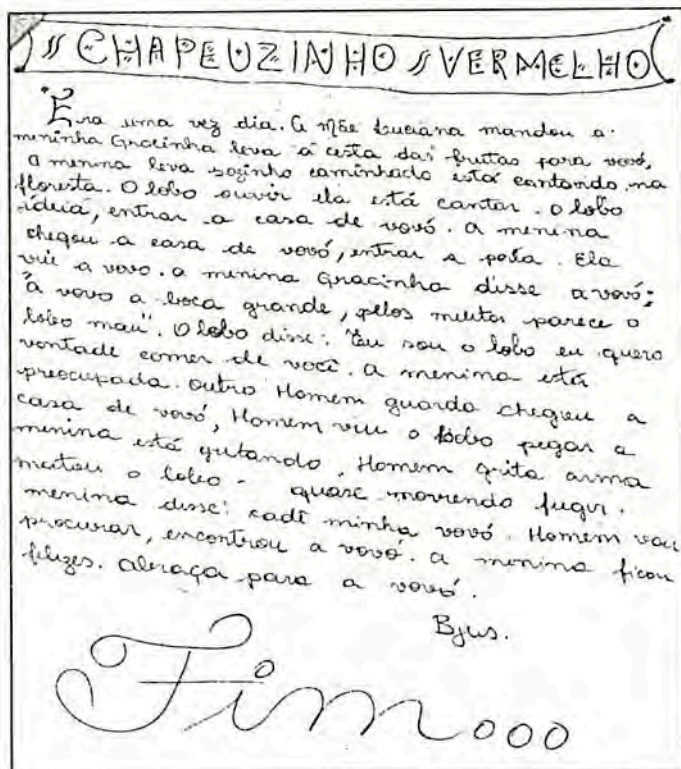 CHAPEUZINHO VERMELHO
"Era uma vez dia. A mãe Luciana mandou a
meninha Gracinha leva a cesta das frutas para vovó,
a menina leva sozinho caminhado está cantando na
floresta. O lobo ouvir ela está cantar. O lobo
ideiá, entrar a casa de vovó. A menina
chegou a casa de vovó, entrar a pota. Ela
viu a vovo. a menina Gracinha disse a vovó:
"à vovo a boca grande, pelos muitos parece o
lobo mau". O lobo disse: "Eu sou o lobo eu quero
vontade comer de você. a menina está
preocupada. outro Homem guarda chegou a
casa de vovó, Homem viu o lobo pegar a
menina está gutando, Homem grita arma
matou o lobo. quase morrendo fugir.
menina disse: cadê minha vovó. Homem vai
procurar, encontrou a vovó. a menina ficou
felizes. abraça para a vovó.
Bjus.
Fim...